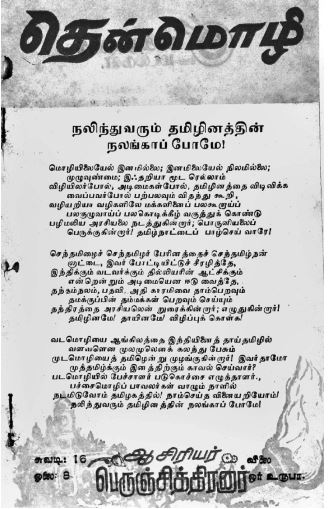 தென்மொழி
நலிந்துவரும் தமிழினத்தின்
நலங்காப் போமே!
மொழியிலையேல் இனமில்லை; இனமிலையேல் நிலமில்லை;
முழுவுண்மை; இஃதறியா மூட ரெல்லாம்
விழியிலர்போல், அடிமைகள்போல், தமிழினத்தை விடிவிக்க
வைப்பவர்போல் பற்பலவும் விதந்து கூறி,
வழியறியா வழிகளிலே மக்களினைப் பலகூறாய்ப்
பலகுழுவாய்ப் பலகொடிக்கீழ் வகுத்துக் கொண்டு
பழிமலிய அரசியலை நடத்துகின்றார்; பொருளினைப்
பெருக்குகின்றார்! தமிழ்நாட்டைப் பாழ்செய் வாரே!
செந்தமிழைச் செந்தமிழர் பேரினத்தைச் செந்தமிழ்தன்
னாட்டை, இவர் போட்டியிட்டுச் சீரழித்தே,
இந்திக்கும் வடவர்க்கும் தில்லியரின் ஆட்சிக்கும்
என்றென்றும் அடிமையென ஈடு வைத்தே,
தந்நலம், பதவி, அதி காரமிவை தாம்பெறவும்
தமக்குப்பின் தம்மக்கள் பெறவும் செய்யும்
தந்திரத்தை அரசியலென் றுரைக்கின்றார்; எழுதுகின்றார்!
தமிழினமே! தாயினமே! விழிப்புக் கொள்க!
வடமொழியை ஆங்கிலத்தை இந்தியினைத் தாய்தமிழில்
முடமொழியைத் தமிழென்று முழங்குகின்றார்! இவர்தாமோ
முத்தமிழ்க்கும் இனத்திற்கும் காவல் செய்வார்?
பச்சைமொழிப் பாவலர்கள் வாழும் நாளில்
நடமிடுவோம் தமிழகத்தில்! தாம்செய்த வினையறியோம்!
நலிந்துவரும் தமிழினத்தின் நலங்காப் போமே!
சுவடி: 16 ஆசிரியர் விலை
ஓலை: 8 பெருஞ்சித்திரனார் ஓர் உருபா.